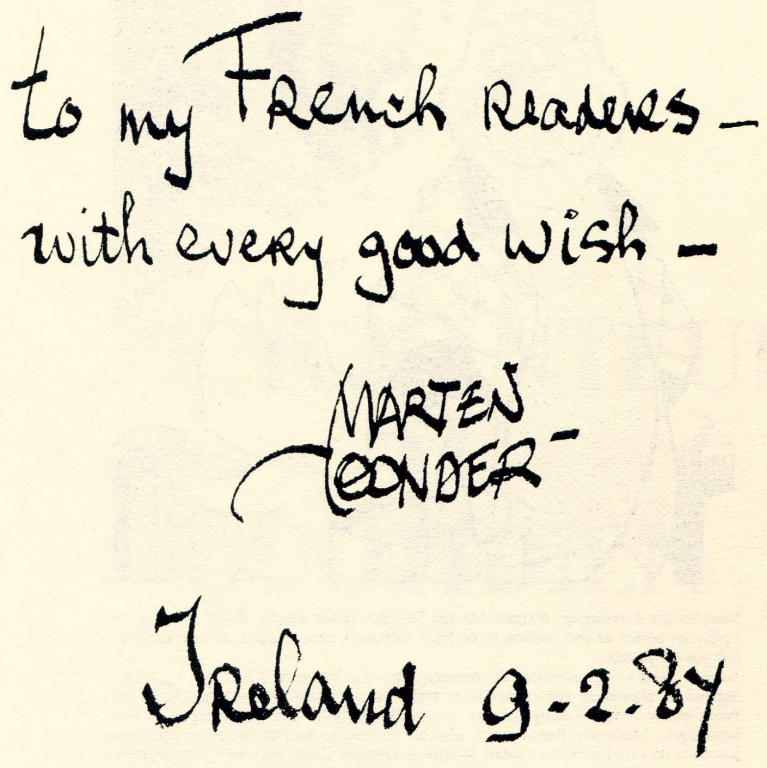 to my French readers –
with every good wish –
MARTEN
TOONDER –
Ireland 9-2-84